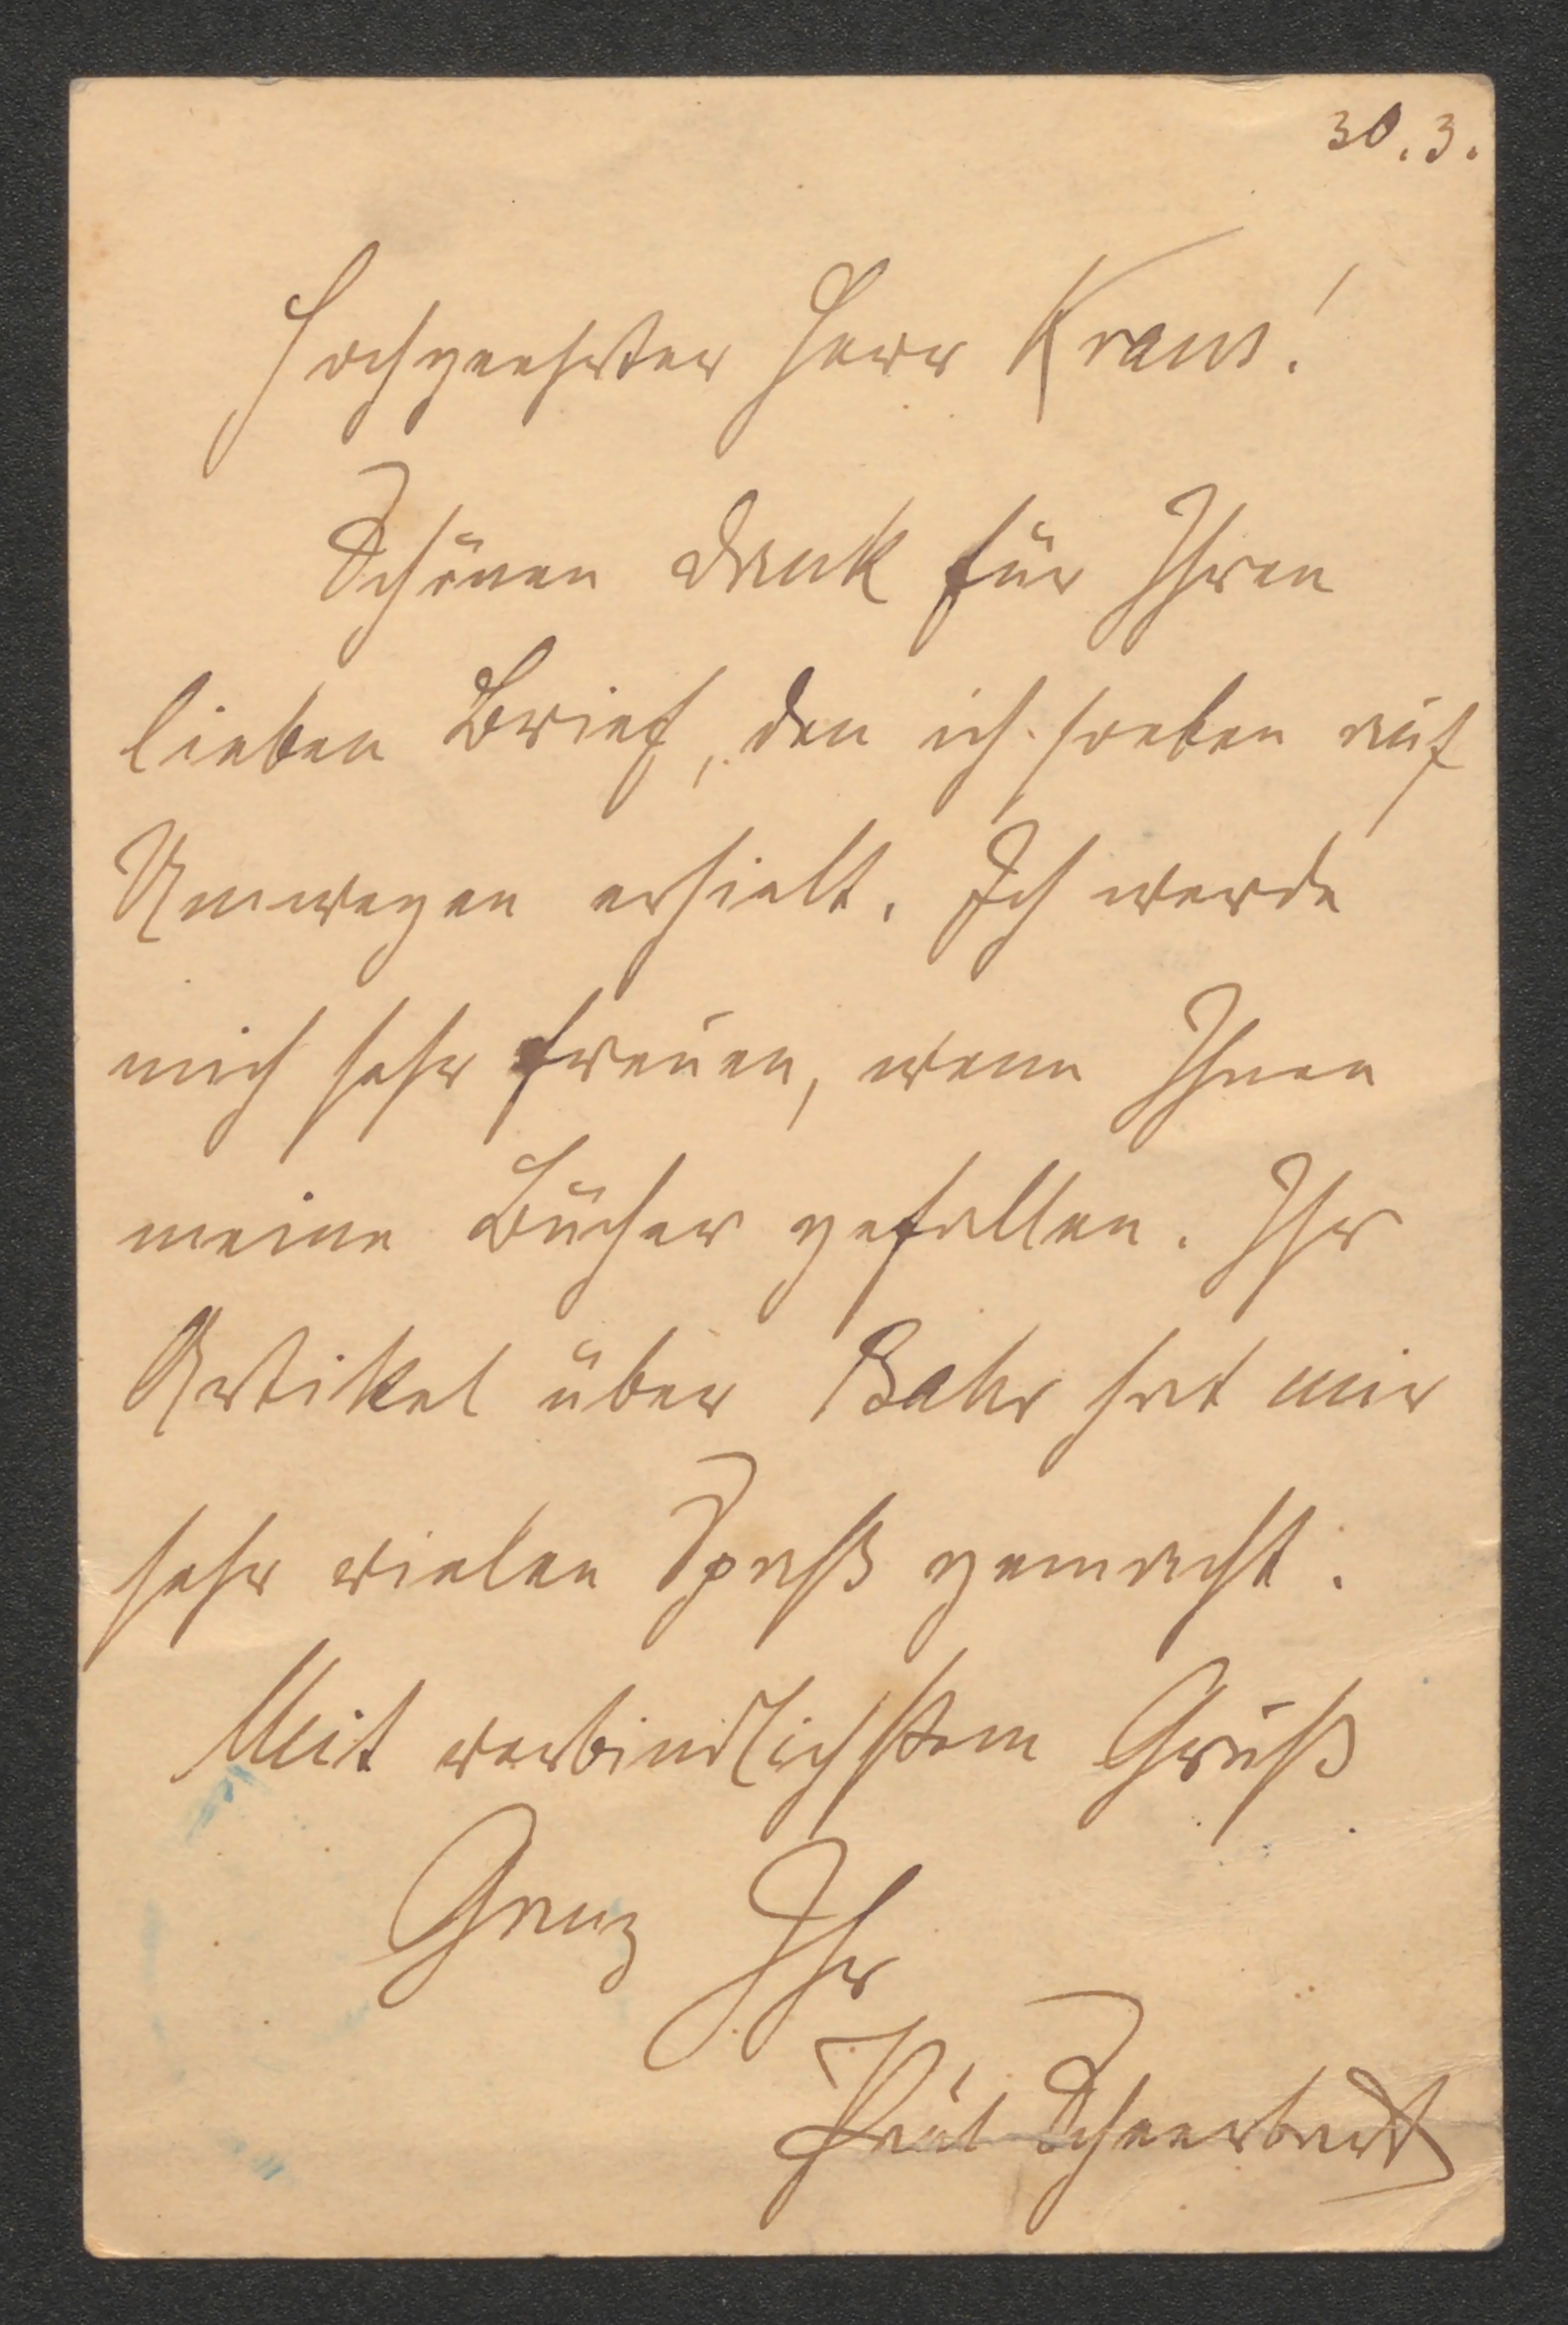 30.3.
Hochgeehrter Herr Kraus!
Schönen Dank für Ihren
lieben Brief, den ich soeben auf
Umwegen erhielt. Ich werde
mich sehr freuen, wenn Ihnen
meine Bücher gefallen. Ihr
Artikel über Bahr hat mir
sehr vielen Spaß gemacht.
Mit verbindlichstem Gruß
Ganz Ihr
Paul Scheerbart